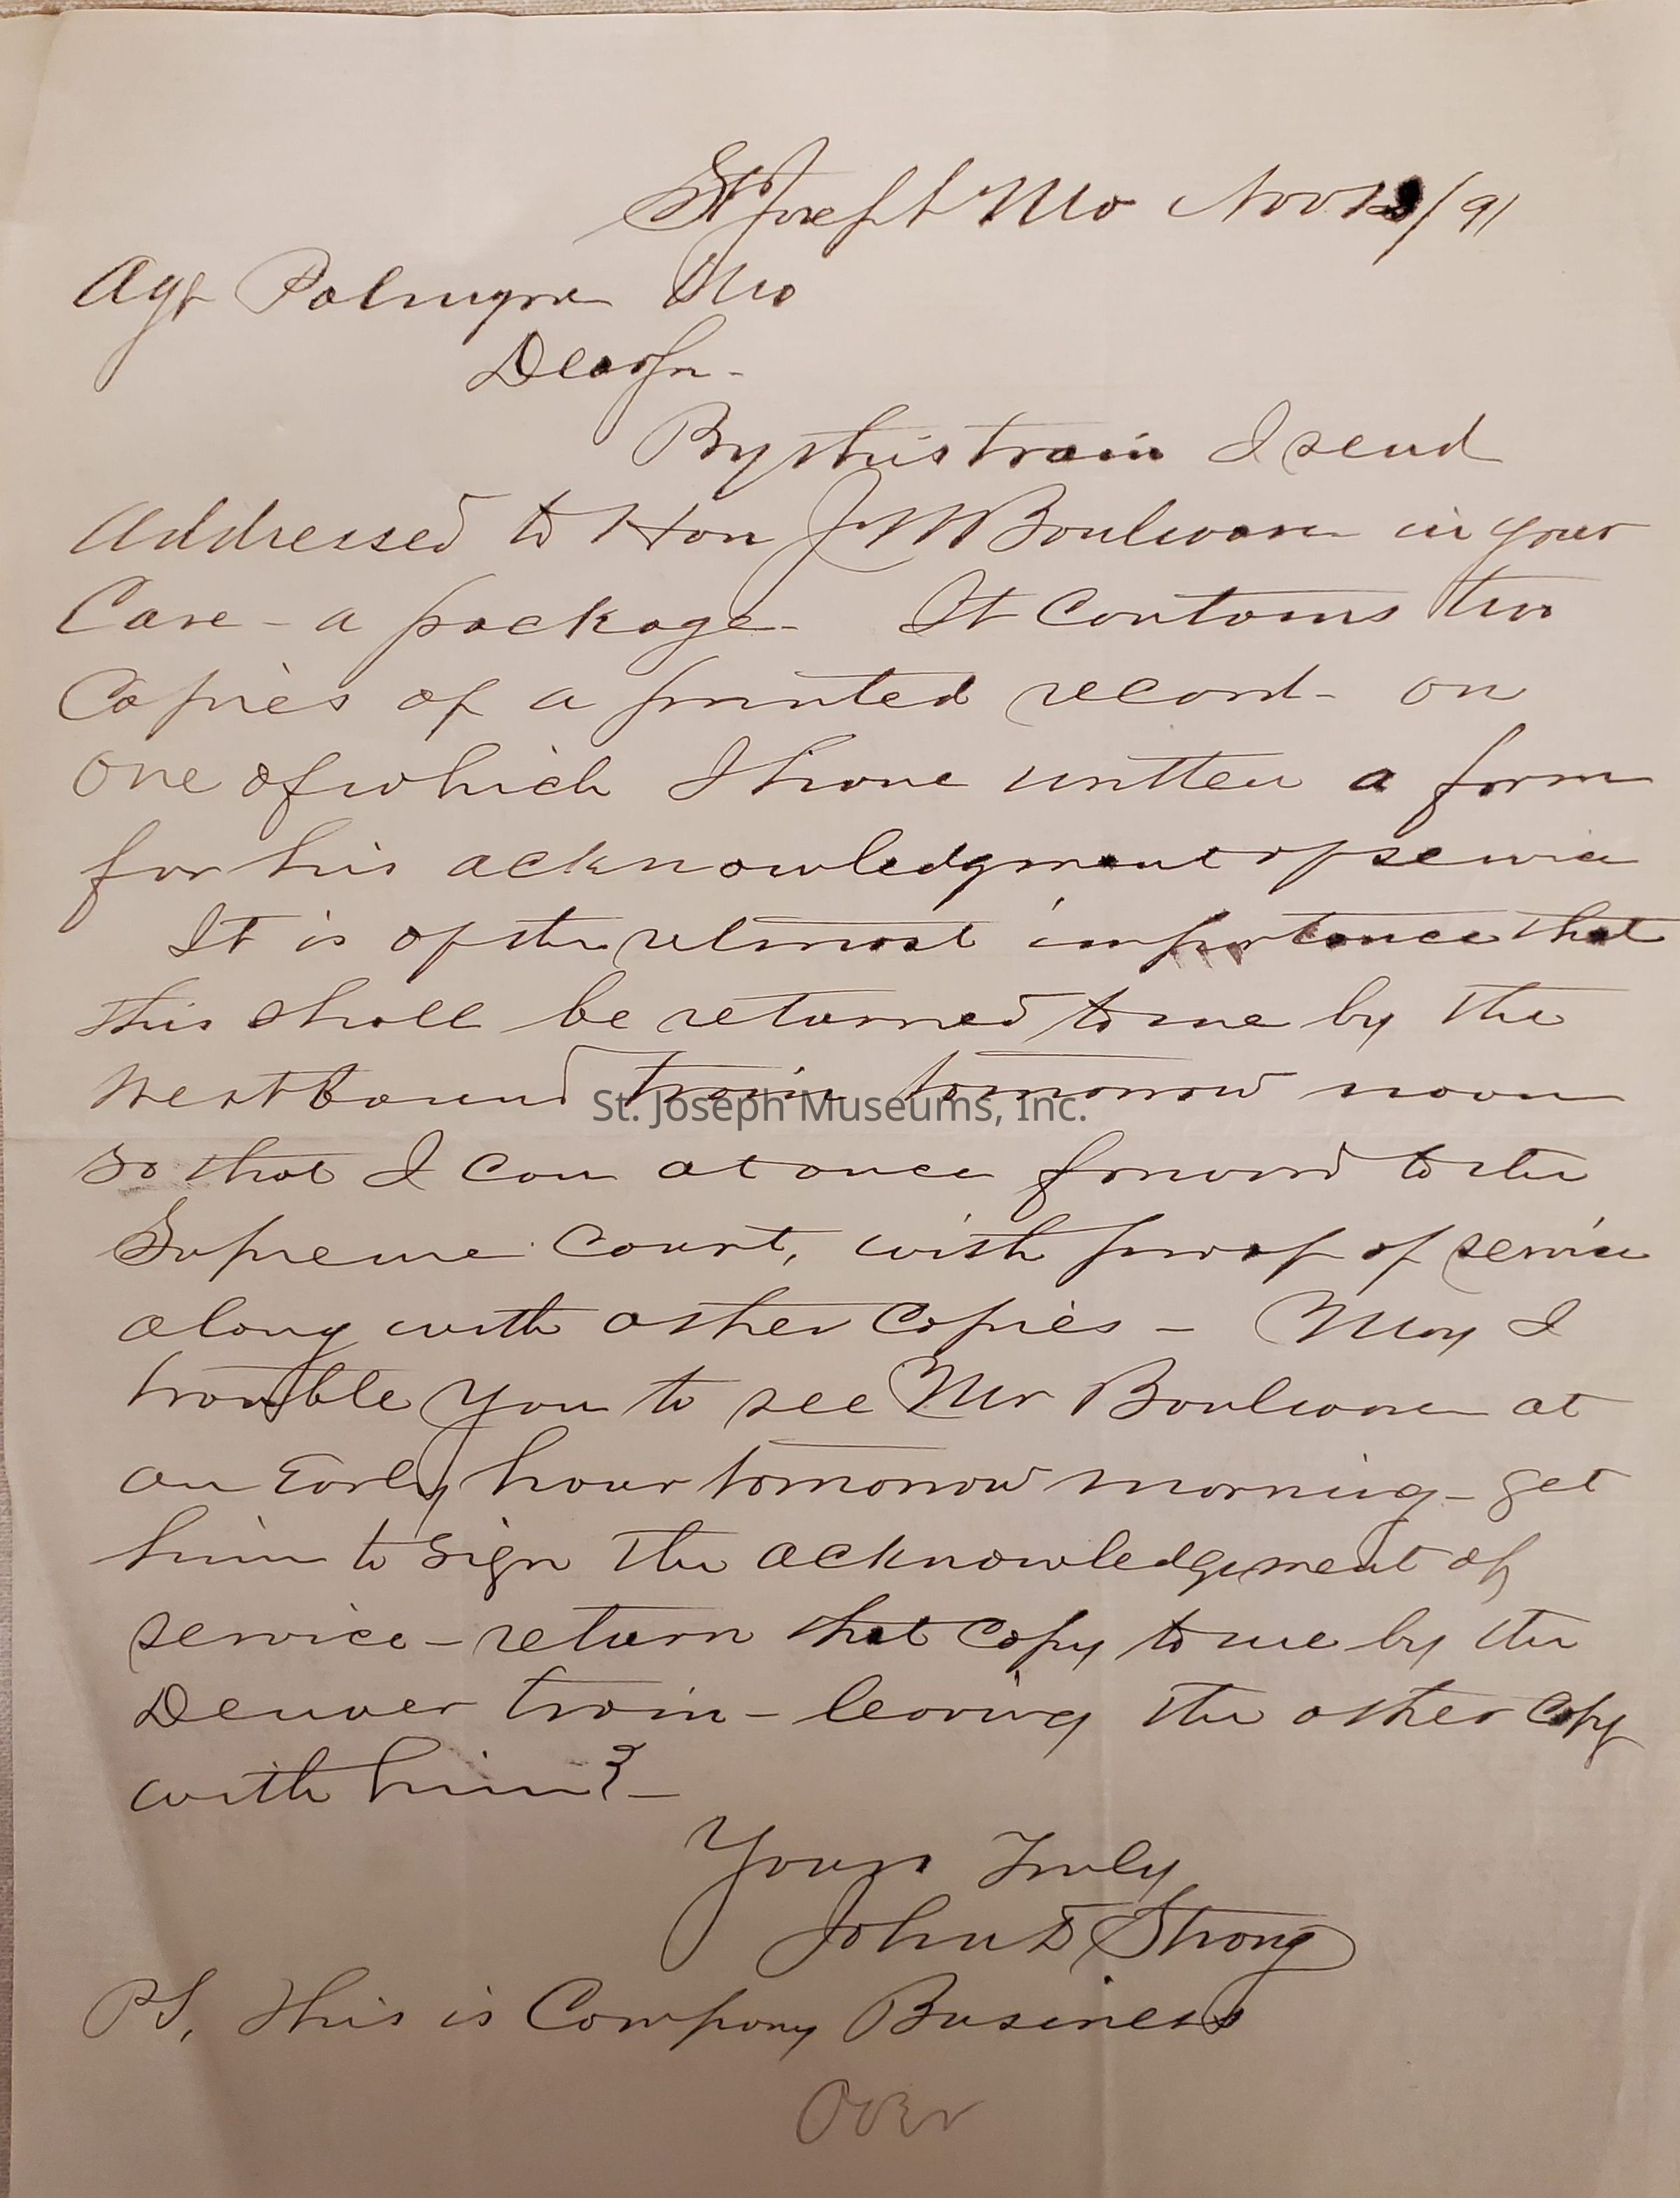 St Joseph Mo Nov /91
Agt Palmyra Mo
Dear Sir-
By this train I send
Addressed to Hon J M Boulware in your
Care - a package - It Contains two
Copies of a printed record - on
one of which I have written a form
for his acknowledgment of service
It is of the utmost importance that
this shall be returned to me by the
West bound train tomorrow noon
So that I can at once forward to the
Supreme Court, with proof of service
along with other Copies - May I
trouble you to see Mr Boulware at
an Early hour tomorrow morning - get
him to sign the acknowledgement of
service - return that Copy to me by the
Denver train - leaving the other Copy
with him? -
Yours Truly
John Strong
PS, this is Company Business
Over
St. Joseph Museums, Inc.